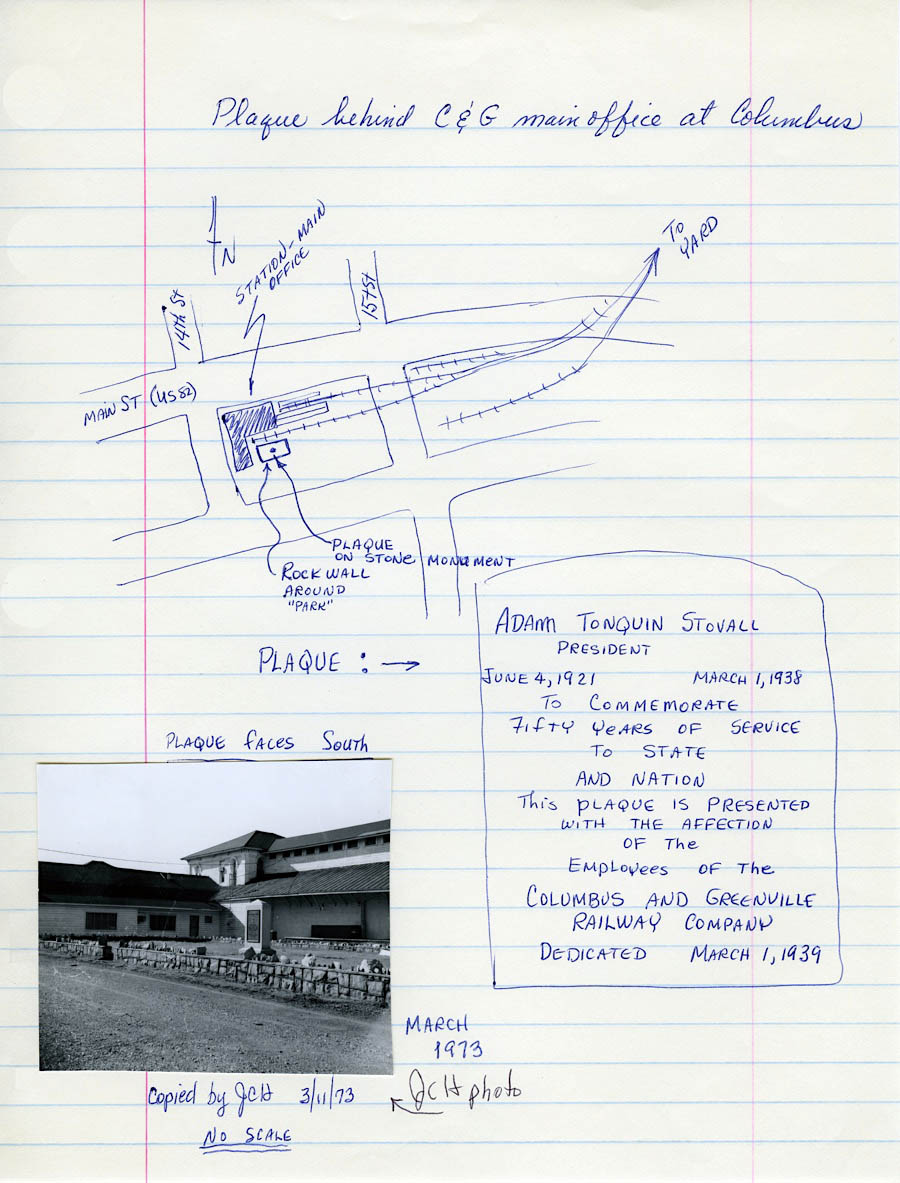 Plaque behind C & G main office at Columbus
N
STATION - MAIN
OFFICE
TO
YARD
14th St
15th St
MAIN ST (US 82)
PLAQUE
ON STONE MONUMENT
ROCK WALL
AROUND
"PARK"
PLAQUE : →
ADAM TONQUIN STOVALL
PRESIDENT
JUNE 4, 1921 MARCH 1, 1938
TO COMMEMORATE
FIFTY YEARS OF SERVICE
TO STATE
AND NATION
THIS PLAQUE IS PRESENTED
WITH THE AFFECTION
OF THE
EMPLOYEES OF THE
COLUMBUS AND GREENVILLE
RAILWAY COMPANY
DEDICATED MARCH 1, 1939
PLAQUE FACES SOUTH
MARCH
1973
Copied by JCH 3/11/73
JCH photo
NO SCALE